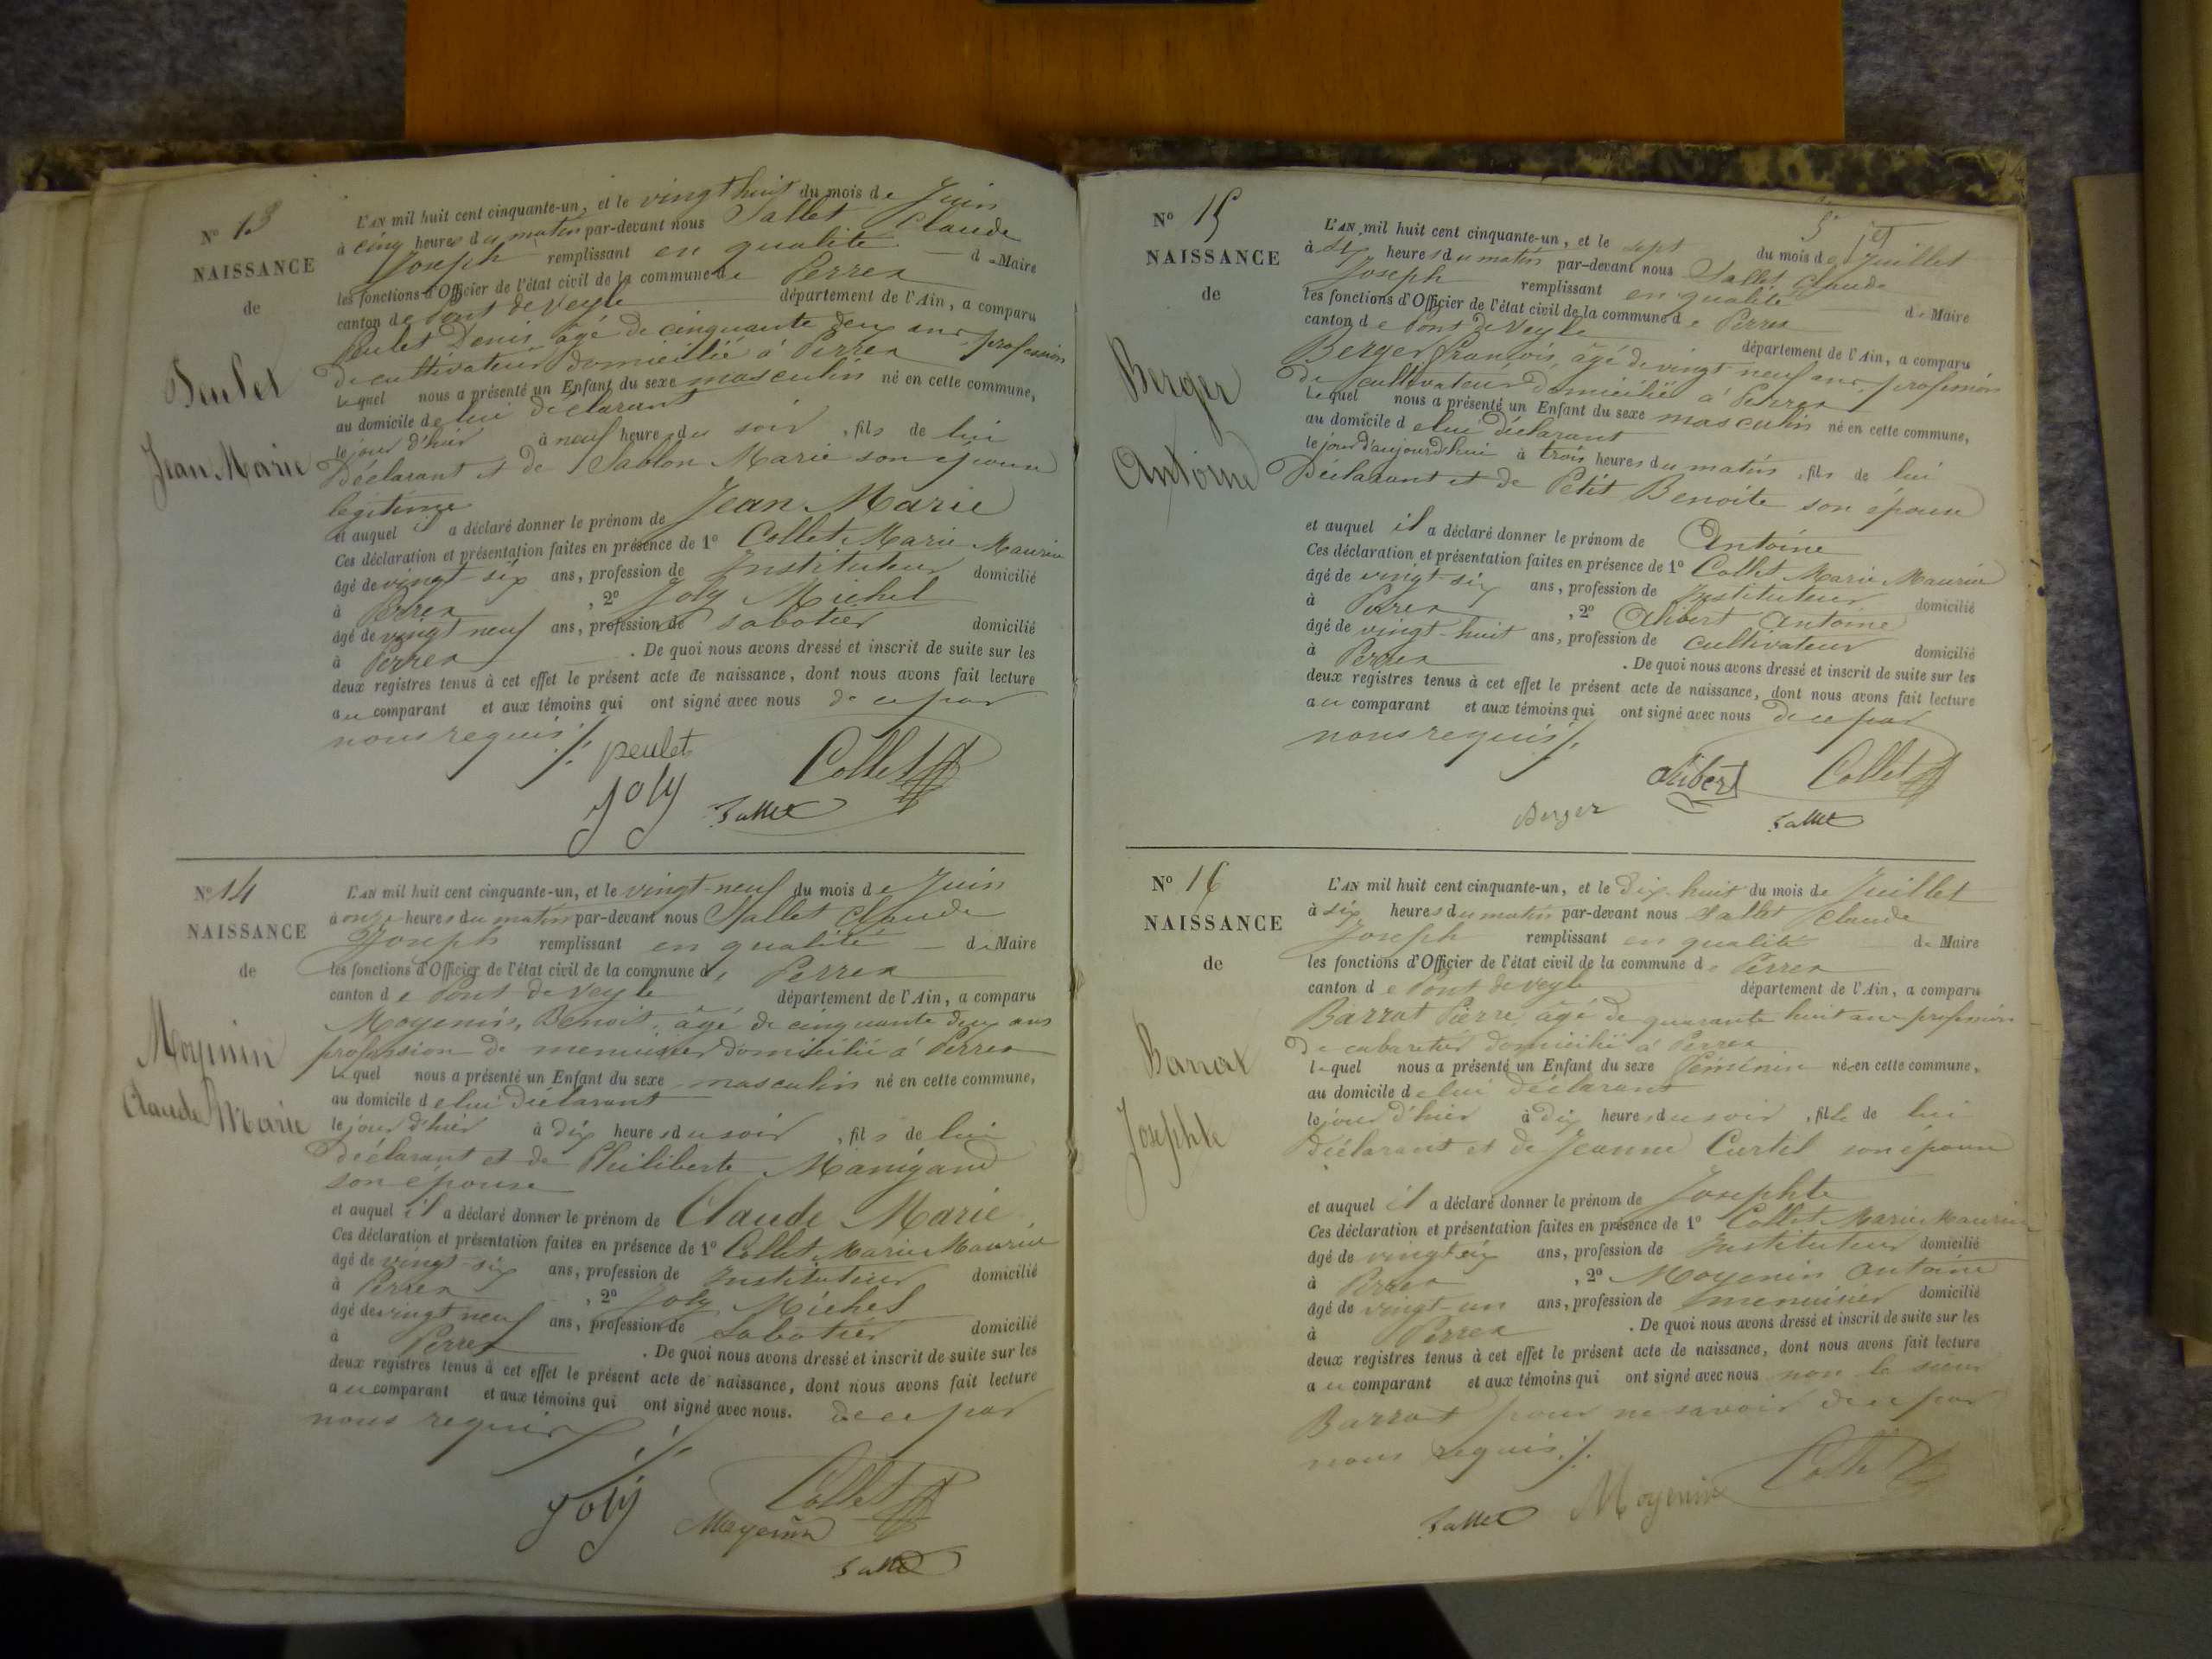 N° 13
NAISSANCE
de
Peulet
Jean Marie
L'AN mil huit cent cinquante-un, et le vingt huit du mois de Juin
à cinq heures du matin par-devant nous Sallet Claude
Joseph remplissant en qualité de Maire
les fonctions d'Officier de l'état civil de la commune de Perrex
canton de Pont de Veyle département de l'Ain, a comparu
Peulet Denis, âgé de cinquante deux ans, profession
de cultivateur domicilié à Perrex
Lequel nous a présenté un Enfant du sexe masculin né en cette commune,
au domicile de lui déclarant
le jour d'hier à neuf heures du soir, fils de lui
Déclarant et de Sablon Marie son épouse
légitime
et auquel il a déclaré donner le prénom de Jean Marie
Ces déclaration et présentation faites en présence de 1° Collet Marie Maurice
âgé de vingt-six ans, profession de Instituteur domicilié
à Perrex, 2° Joly Michel
âgé de vingt neuf ans, profession de sabotier domicilié
à Perrex. De quoi nous avons dressé et inscrit de suite sur les
deux registres tenus à cet effet le présent acte de naissance, dont nous avons fait lecture
au comparant et aux témoins qui ont signé avec nous de ce par
nous requis ./.
peulet
Collet
Joly
Sallet
N° 14
NAISSANCE
de
Moyenin
Claude Marie
L'AN mil huit cent cinquante-un, et le vingt-neuf du mois de Juin
à onze heures du matin par-devant nous Sallet Claude
Joseph remplissant en qualité de Maire
les fonctions d'Officier de l'état civil de la commune de Perrex
canton de Pont de Veyle département de l'Ain, a comparu
Moyenin, Benoit, âgé de cinquante deux ans
profession de menuisier domicilié à Perrex
Lequel nous a présenté un Enfant du sexe masculin né en cette commune,
au domicile de lui Déclarant
le jour d'hier à dix heures du soir, fils de lui
déclarant et de Philiberte Manigand
son épouse
et auquel il a déclaré donner le prénom de Claude Marie
Ces déclaration et présentation faites en présence de 1° Collet Marie Maurice
âgé de vingt-six ans, profession de Instituteur domicilié
à Perrex, 2° Joly Michel
âgé de vingt neuf ans, profession de Sabotier domicilié
à Perrex. De quoi nous avons dressé et inscrit de suite sur les
deux registres tenus à cet effet le présent acte de naissance, dont nous avons fait lecture
au comparant et aux témoins qui ont signé avec nous. de ce par
nous requis ./.
Joly
Collet
Moyenin
Sallet
N° 15
NAISSANCE
de
Berger
Antoine
L'AN mil huit cent cinquante-un, et le sept du mois de Juillet
à six heures du matin par-devant nous Sallet Claude
Joseph remplissant en qualité de Maire
les fonctions d'Officier de l'état civil de la commune de Perrex
canton de Pont de Veyle département de l'Ain, a comparu
Berger François, âgé de vingt neuf ans, profession
de cultivateur domicilié à Perrex
Lequel nous a présenté un Enfant du sexe masculin né en cette commune,
au domicile de lui déclarant
le jour d'aujourd'hui à trois heures du matin, fils de lui
Déclarant et de Petit Benoite son épouse
et auquel il a déclaré donner le prénom de Antoine
Ces déclaration et présentation faites en présence de 1° Collet Marie Maurice
âgé de vingt-six ans, profession de Instituteur domicilié
à Perrex, 2° Alibert Antoine
âgé de vingt-huit ans, profession de cultivateur domicilié
à Perrex. De quoi nous avons dressé et inscrit de suite sur les
deux registres tenus à cet effet le présent acte de naissance, dont nous avons fait lecture
au comparant et aux témoins qui ont signé avec nous de ce par
nous requis ./.
Alibert
Collet
Berger
Sallet
N° 16
NAISSANCE
de
Barrat
Josephte
L'AN mil huit cent cinquante-un, et le dix-huit du mois de Juillet
à six heures du matin par-devant nous Sallet Claude
Joseph remplissant en qualité de Maire
les fonctions d'Officier de l'état civil de la commune de Perrex
canton de Pont de Veyle département de l'Ain, a comparu
Barrat Pierre, âgé de quarante huit ans profession
de cabaretier domicilié à Perrex
lequel nous a présenté un Enfant du sexe féminin né en cette commune,
au domicile de lui déclarant
le jour d'hier à dix heures du soir, fille de lui
Déclarant et de Jeanne Curtil son épouse
et auquel il a déclaré donner le prénom de Josephte
Ces déclaration et présentation faites en présence de 1° Collet Marie Maurice
âgé de vingt six ans, profession de Instituteur domicilié
à Perrex, 2° Moyenin Antoine
âgé de vingt-un ans, profession de menuisier domicilié
à Perrex. De quoi nous avons dressé et inscrit de suite sur les
deux registres tenus à cet effet le présent acte de naissance, dont nous avons fait lecture
au comparant et aux témoins qui ont signé avec nous non le sieur
Barrat pour ne savoir de ce par
nous requis ./.
Sallet
Moyenin
Collet